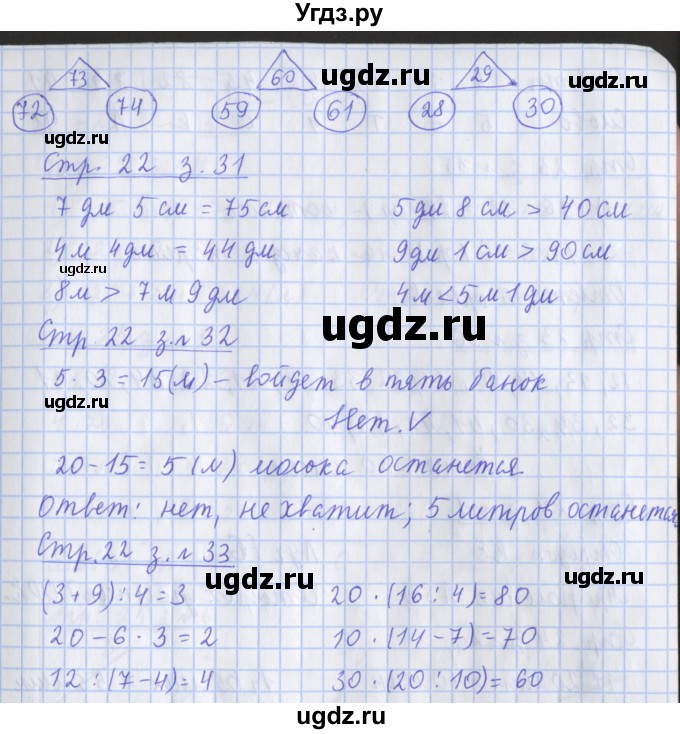 Угдз.ру
73 60 29
ugdz.ru
72 74 59 61 28 30
ugdz.ru ugdz.ru ugdz.ru
Стр. 22 з. 31
7 дм 5 см = 75 см 5 дм 8 см > 40 см
4 м 4 дм = 44 дм 9 дм 1 см > 90 см
ugdz.ru
8 м > 7 м 9 дм 4 м < 5 м 1 дм
ugdz.ru
Стр. 22 з.№ 32
5 · 3 = 15 (л) – войдет в пять банок
ugdz.ru
Нет. V
20 - 15 = 5 (л) молока останется
Ответ: нет, не хватит; 5 литров останется
Стр. 22 з.№ 33
ugdz.ru ugdz.ru
(3 + 9) : 4 = 3 20 · (16 : 4) = 80
20 – 6 · 3 = 2 10 · (14 – 7) = 70
12 : (7 – 4) = 4 30 · (20 : 10) = 60
ugdz.ru
ugdz.ru